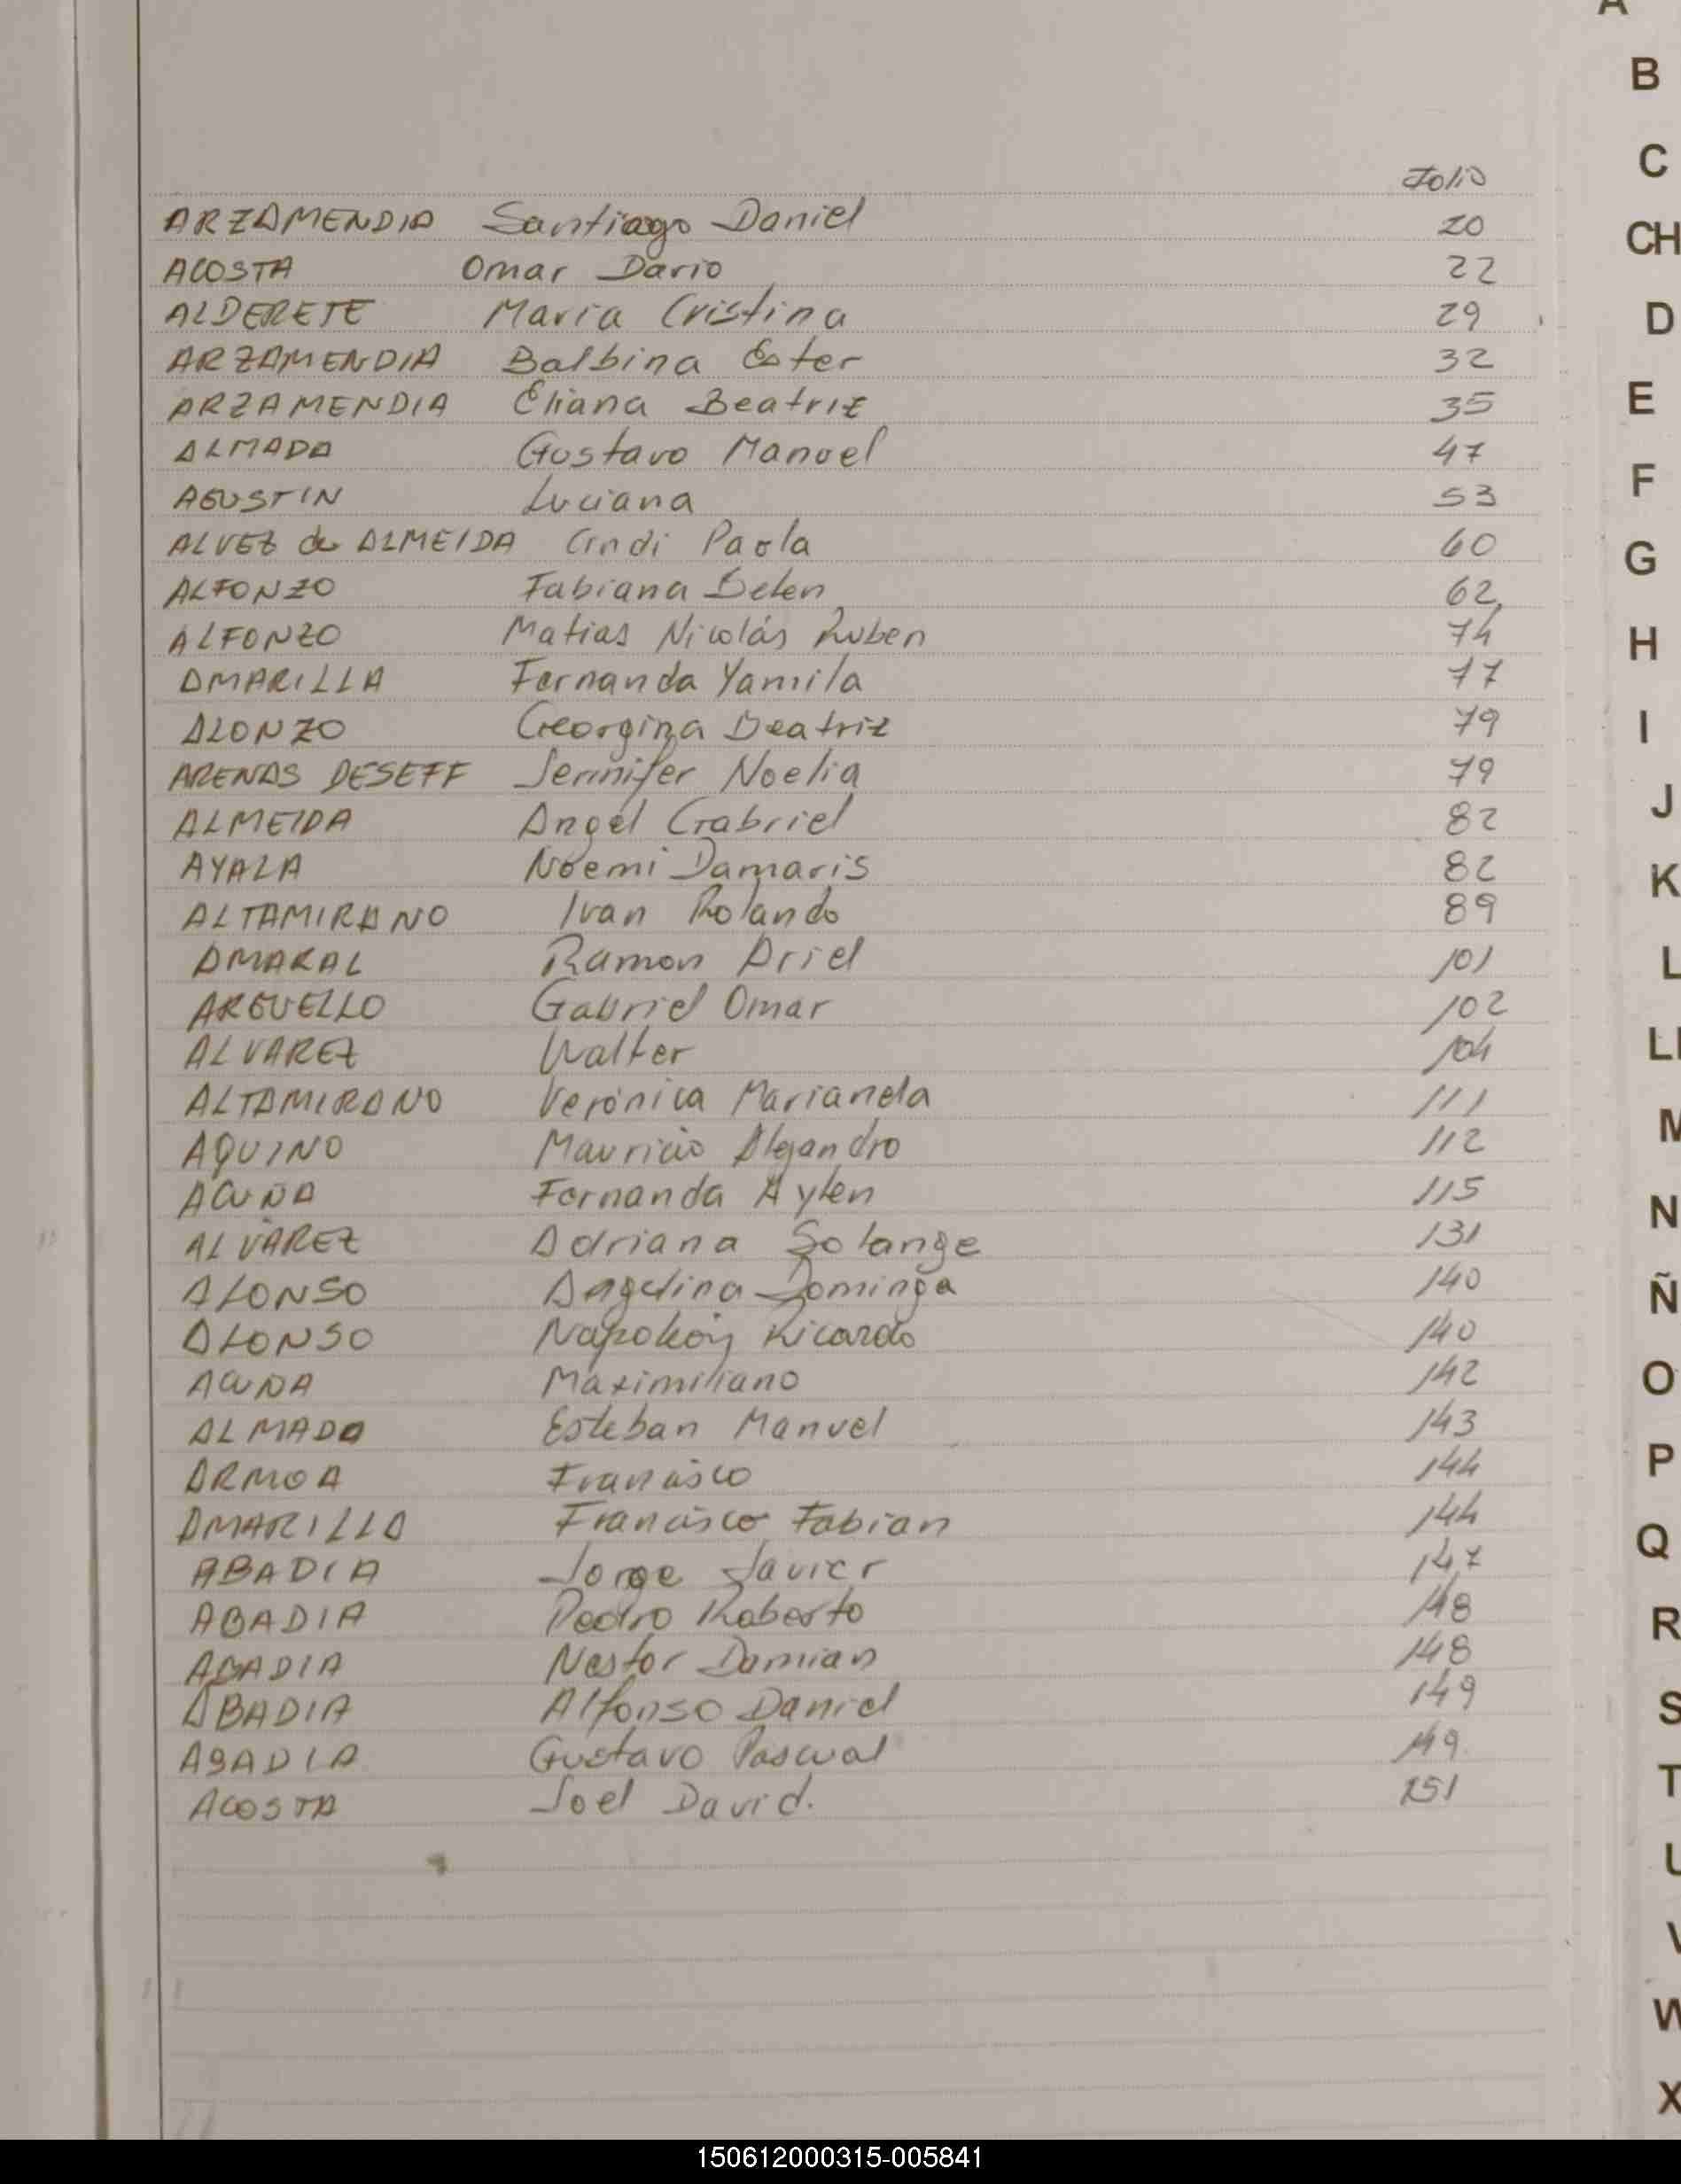 A
B
C
CH
D
E
F
G
H
I
J
K
L
Ll
M
N
Ñ
O
P
Q
R
S
T
U
V
W
X
Folio
ARZAMENDIA Santiago Daniel 20
ACOSTA Omar Dario 22
ALDERETE Maria Cristina 29
ARZAMENDIA Balbina Ester 32
ARZAMENDIA Eliana Beatriz 35
ALMADA Gustavo Manuel 47
AGUSTIN Luciana 53
ALVEZ de ALMEIDA Cindi Paola 60
ALFONZO Fabiana Belen 62
ALFONZO Matias Nicolás Ruben 74
AMARILLA Fernanda Yamila 77
ALONZO Georgina Beatriz 79
ARENAS DESEFF Jennifer Noelia 79
ALMEIDA Angel Gabriel 82
AYALA Noemi Damaris 82
ALTAMIRANO Ivan Rolando 89
AMARAL Ramon Ariel 101
ARGUELLO Gabriel Omar 102
ALVAREZ Walter 104
ALTAMIRANO Verónica Marianela 111
AQUINO Mauricio Alejandro 112
ACUÑA Fernanda Aylen 115
ALVAREZ Adriana Solange 131
ALONSO Angelina Dominga 140
ALONSO Napoleón Ricardo 140
ACUÑA Maximiliano 142
ALMADA Esteban Manuel 143
ARMOA Francisco 144
AMARILLA Francisco Fabian 144
ABADIA Jorge Javier 147
ABADIA Pedro Roberto 148
ABADIA Nestor Damian 148
ABADIA Alfonso Daniel 149
ABADIA Gustavo Pascual 149
ACOSTA Joel David. 151
150612000315-005841